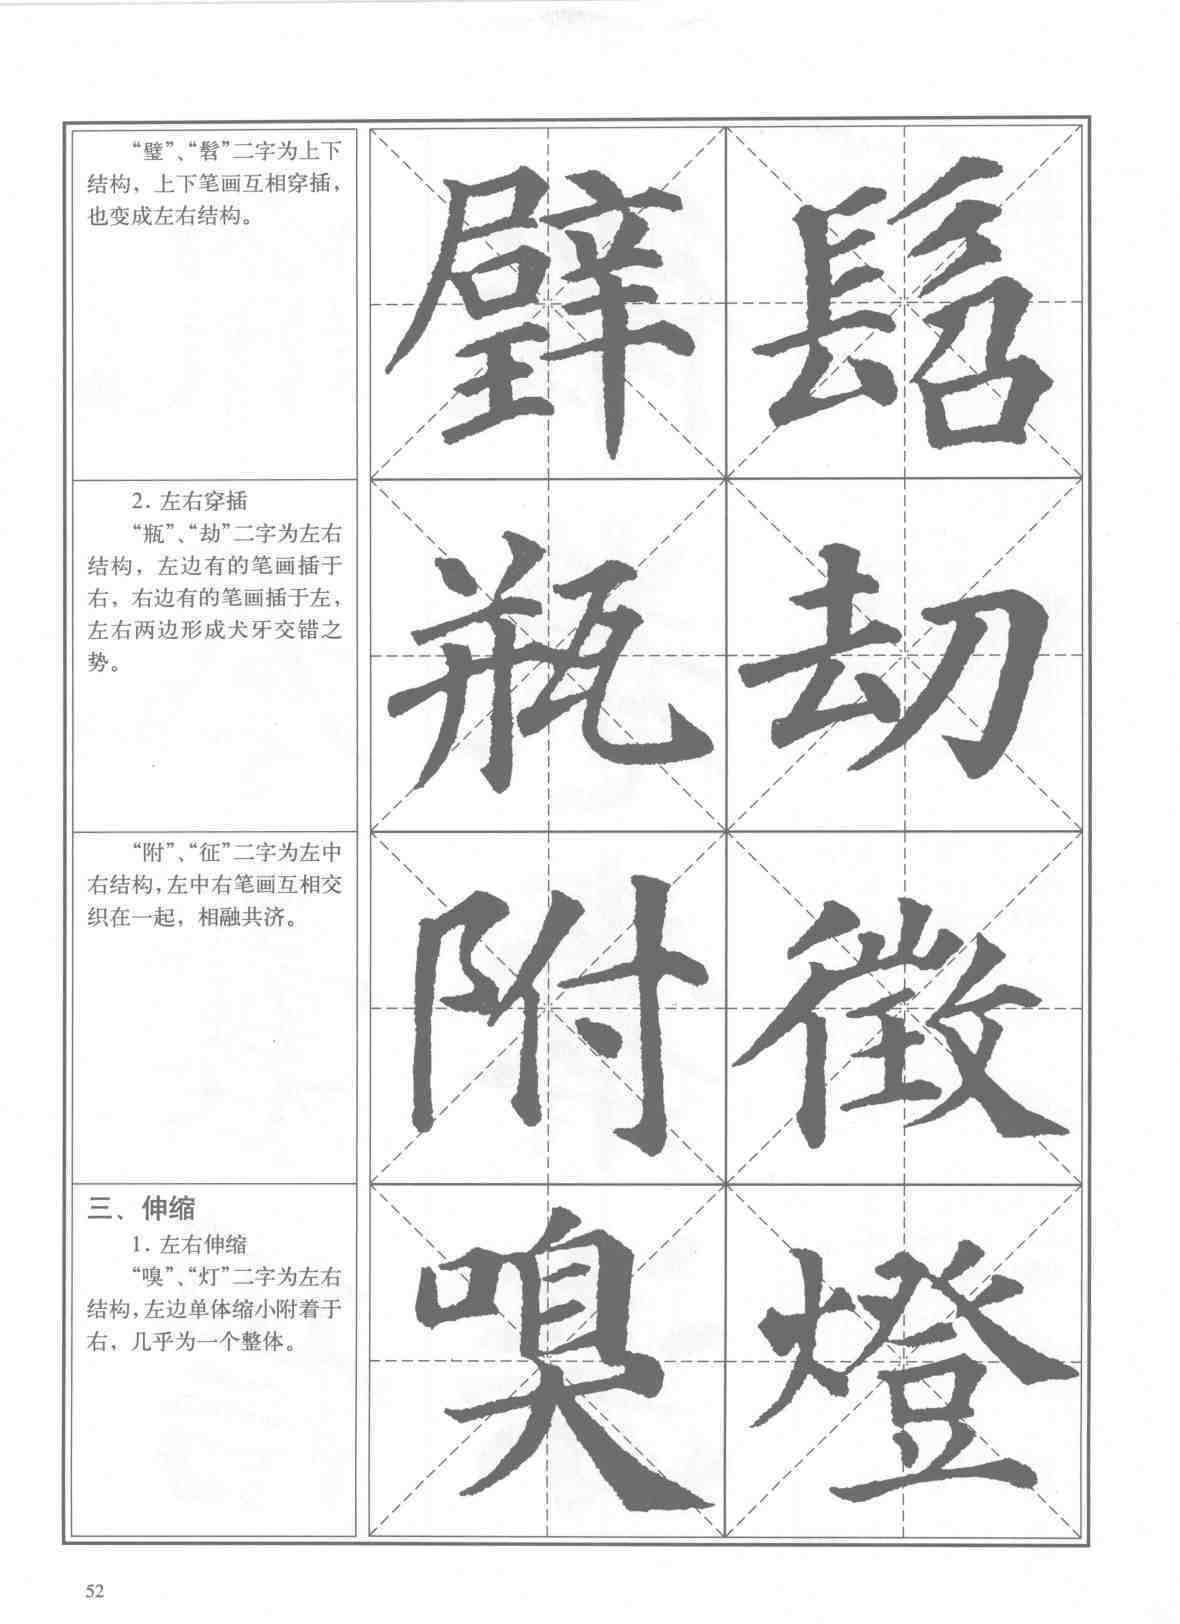 “璧”、“髫”二字为上下
结构，上下笔画互相穿插，
也变成左右结构。
璧 髫
2. 左右穿插
“瓶”、“劫”二字为左右
结构，左边有的笔画插于
右，右边有的笔画插于左，
左右两边形成犬牙交错之
势。
瓶 刧
“附”、“征”二字为左中
右结构，左中右笔画互相交
织在一起，相融共济。
附 徵
三、伸缩
1. 左右伸缩
“嗅”、“灯”二字为左右
结构，左边单体缩小附着于
右，几乎为一个整体。
嗅 燈
52